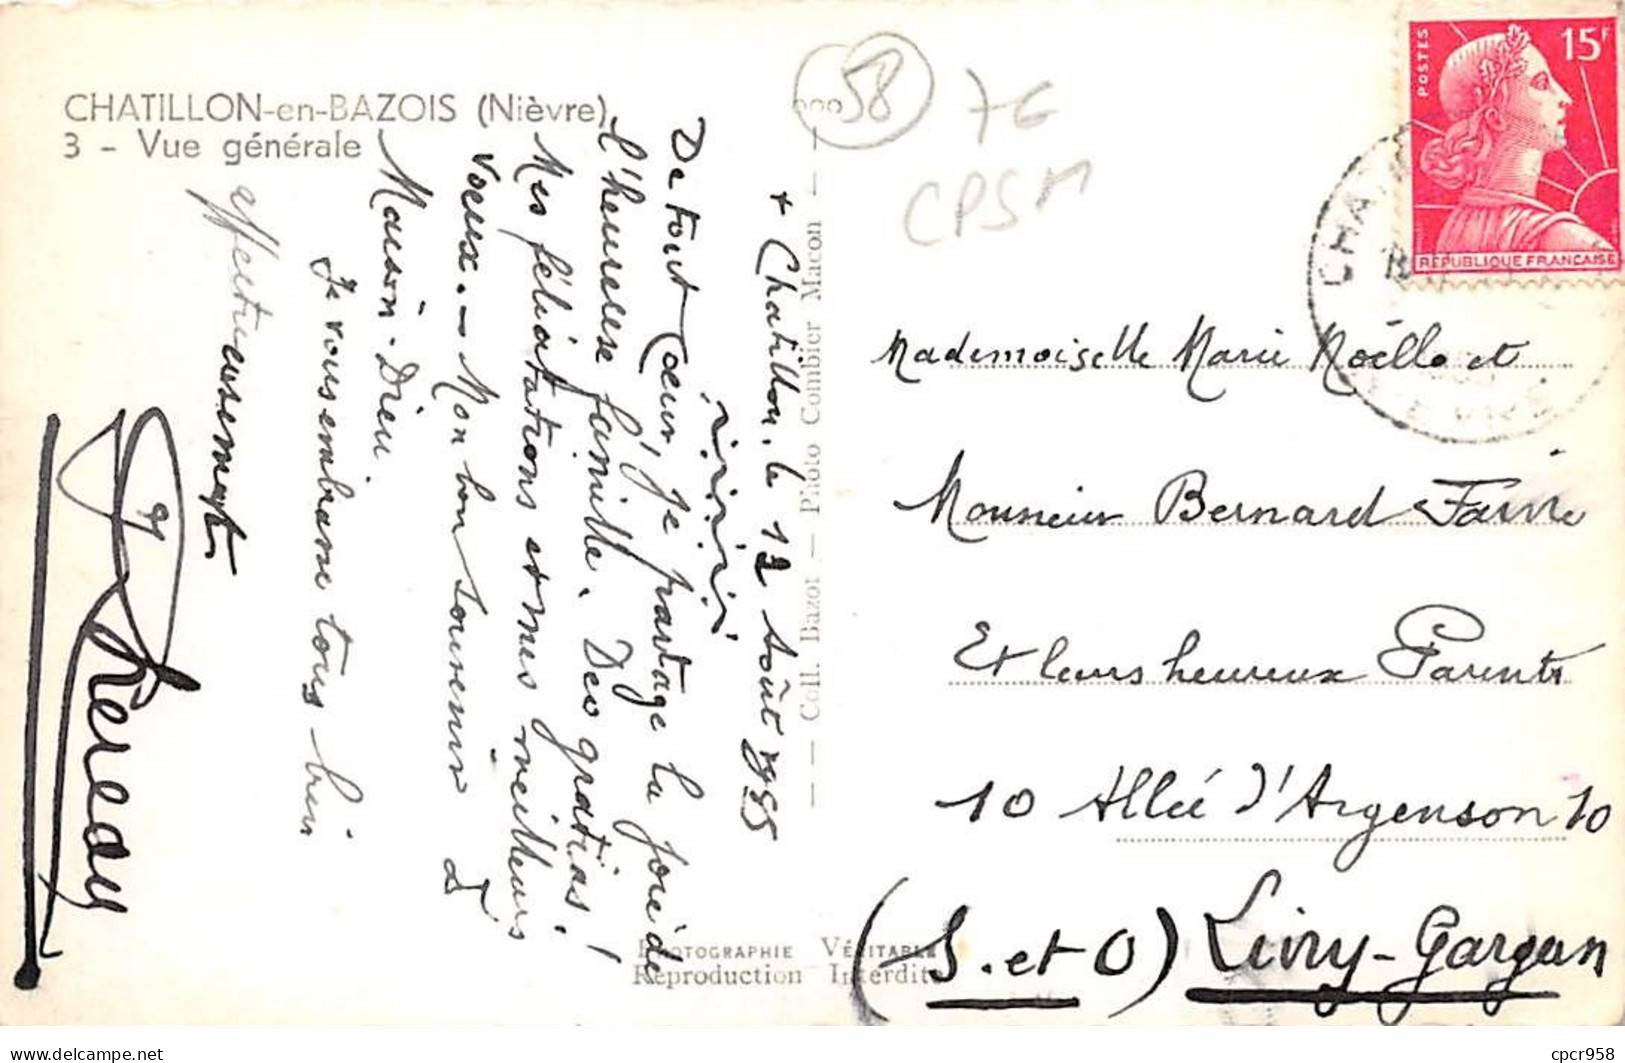 CHATILLON-en-BAZOIS (Nièvre)
3 - Vue générale
+ Chatillon, le 12 Août 1955
De tout Cœur, je partage la joie de
l'heureuse famille. Deo gratias!
Mes félicitations et mes meilleurs
voeux. - Mon bon souvenir à
Maison-Dieu.
Je vous embrasse tous bien
affectueusement
Coll. Bazot — Photo Combier Macon
PHOTOGRAPHIE VÉRITABLE
Reproduction Interdite
58
76
CPSM
POSTES
15F
REPUBLIQUE FRANCAISE
Mademoiselle Marie Noëlle et
Monsieur Bernard Faivre
Et leurs heureux Parents
10 Allée d'Argenson 10
(S. et O) Livry-Gargan
delcampe.net
cpcr958